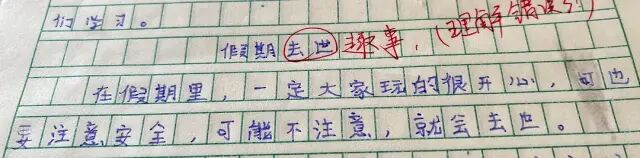 们学习。
假期去世趣事,(理解错误!)
在假期里,一定大家玩的很开心,可也
要注意安全,可能不注意,就会去世。